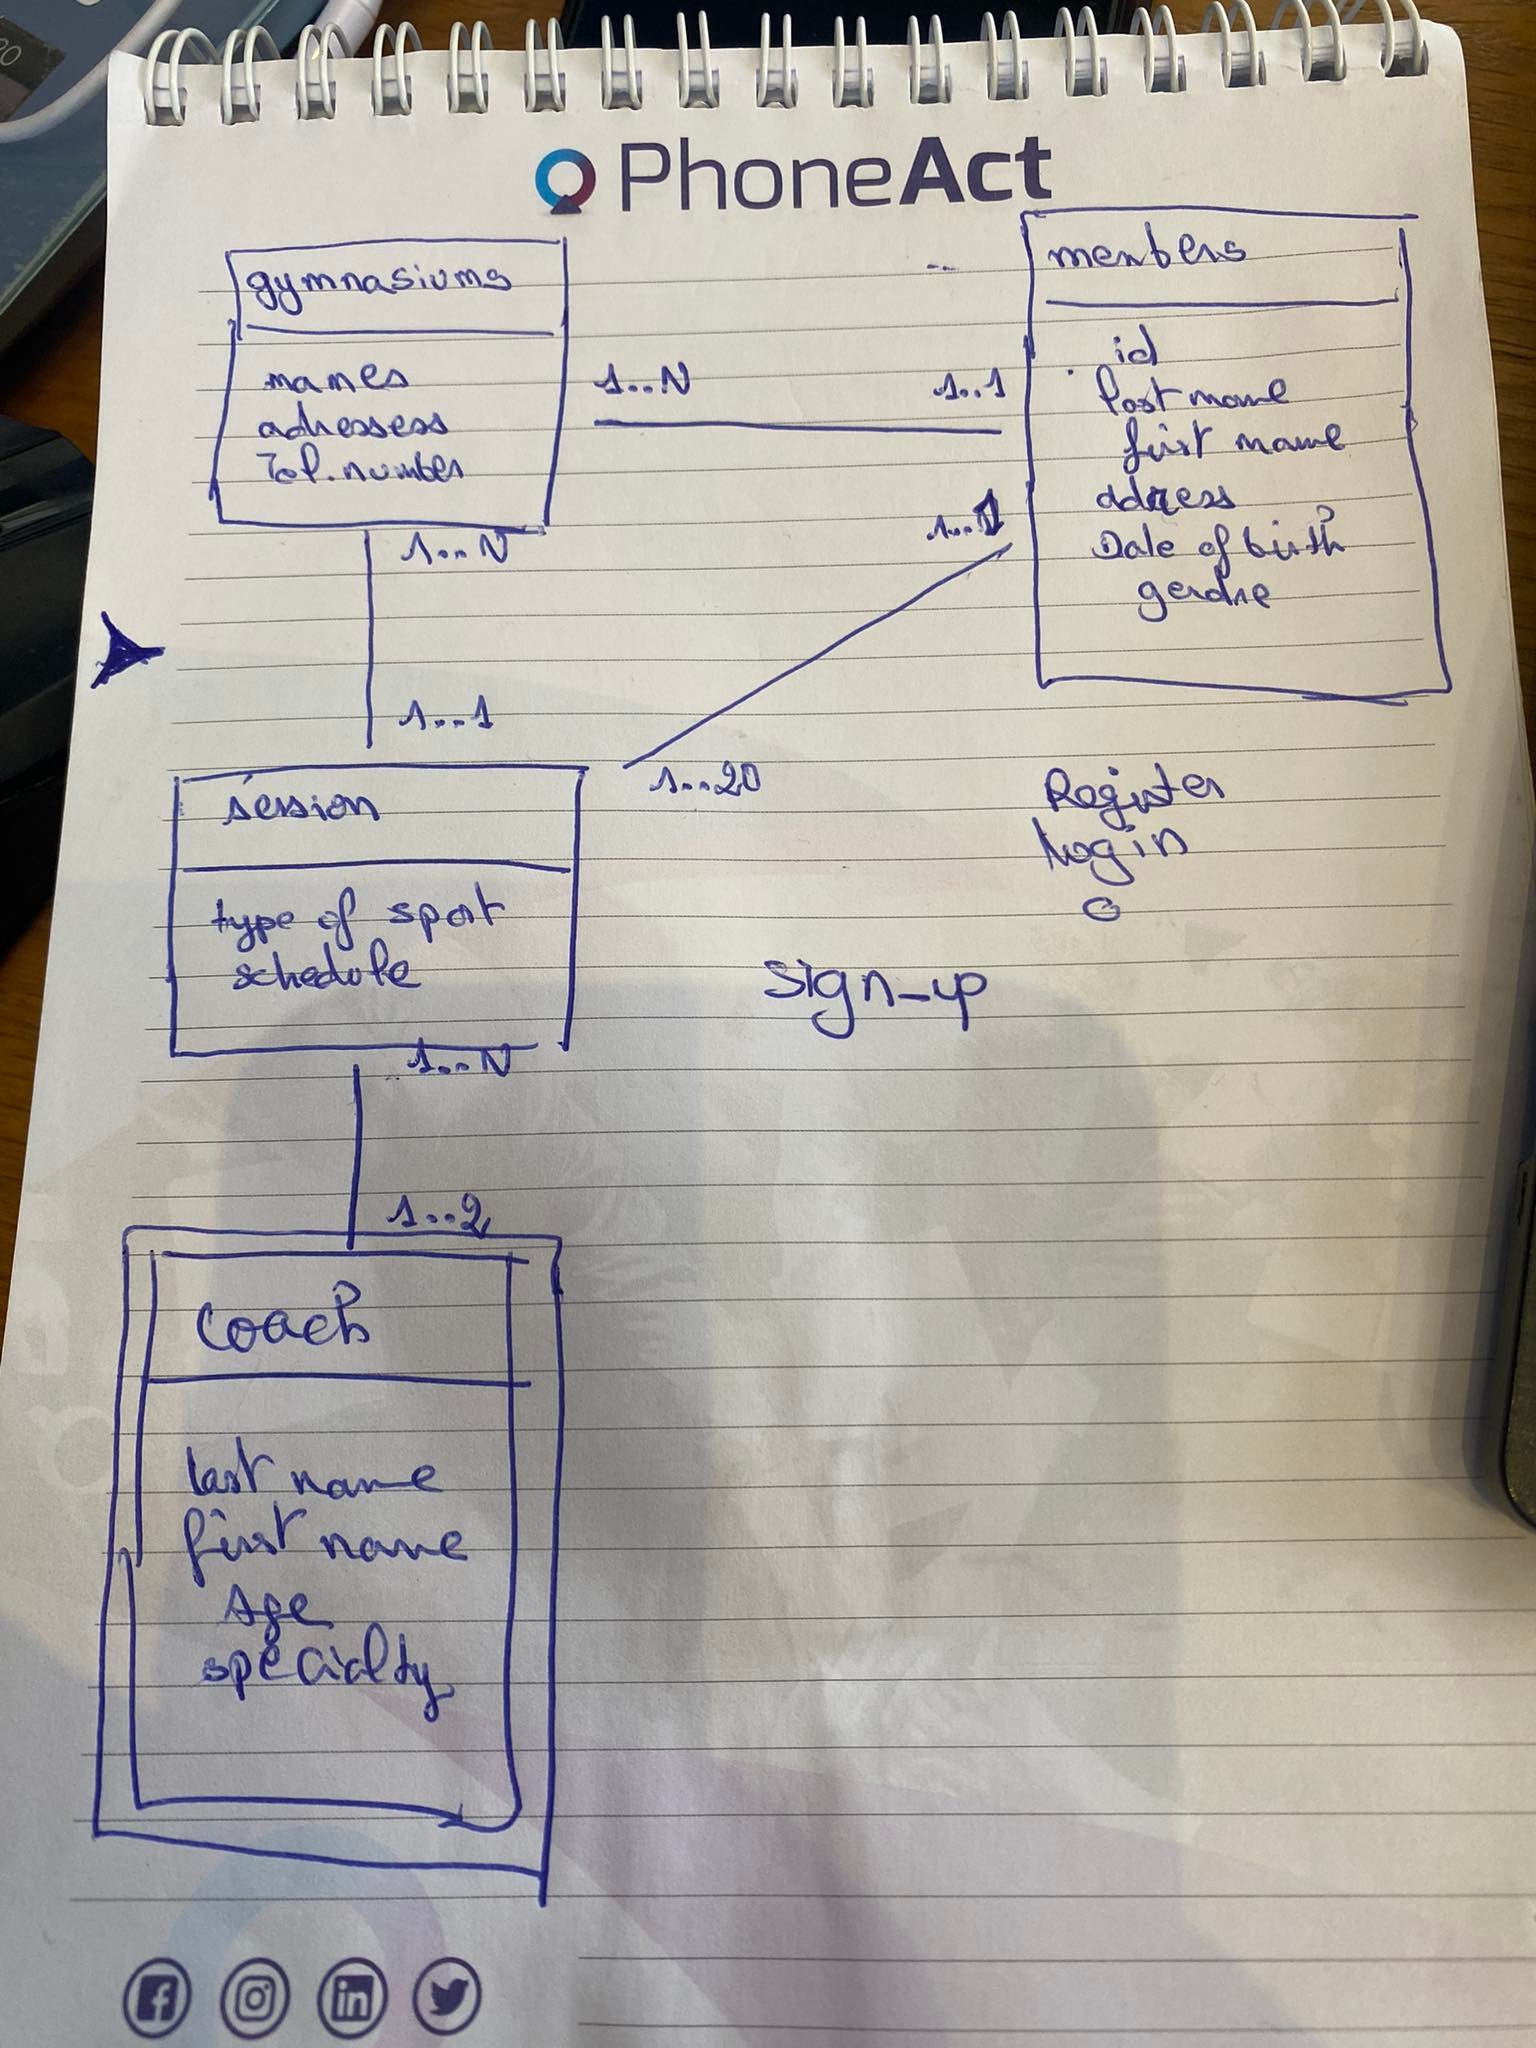 PhoneAct
gymnasiums
names
adressess
Tel. number
1..N
1..1
members
id
last name
first name
address
Date of birth
1..N
1..1
session
type of sport
schedule
1..20
Register
login
sign-up
1..N
1..2
coach
last name
first name
Age
specialty